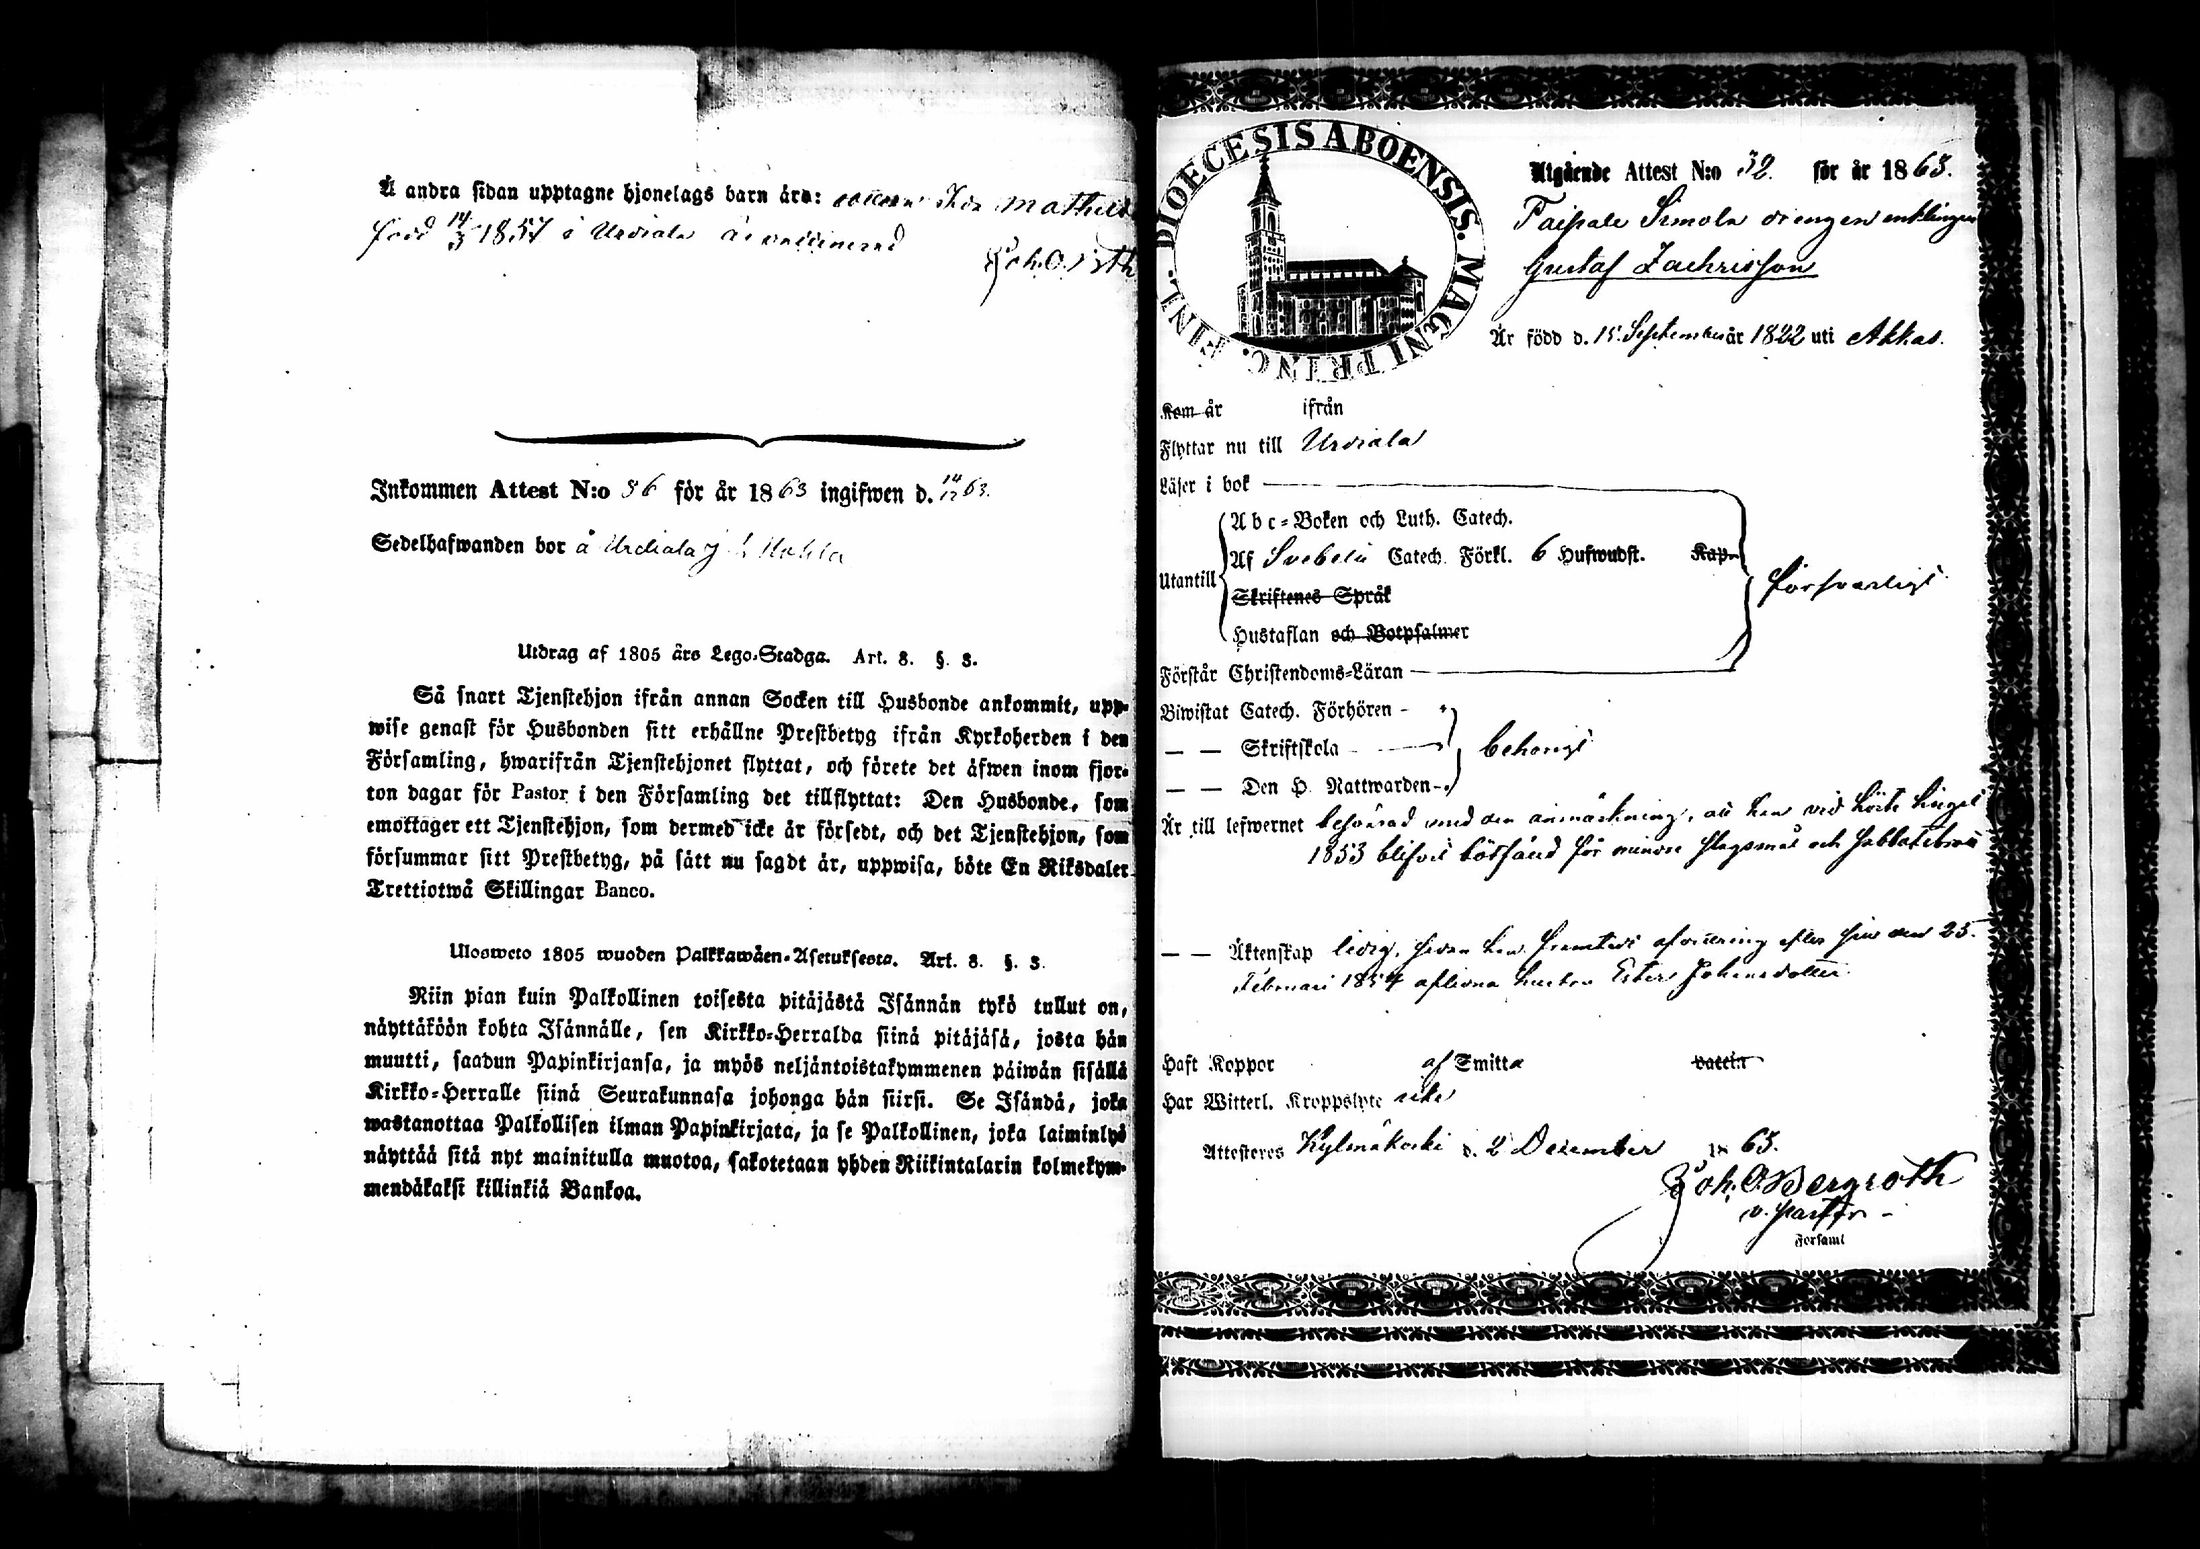 Å andra sidan upptagne hjonelags barn äro: Ida Mathild
född 14/3 1857 i Urdiala är vaccinerad
Joh. O.
Inkommen Attest N:o 56 för år 1863 ingifwen d. 14/12 63.
Sedelhafwanden bor å Urdiala
Utdrag af 1805 års Lego-Stadga. Art. 8. §. 3.
Så snart Tjenstehjon ifrån annan Socken till Husbonde ankommit, upp-
wise genast för Husbonden sitt erhållne Prestbetyg ifrån Kyrkoherden i den
Församling, hwarifrån Tjenstehjonet flyttat, och förete det äfwen inom fjor-
ton dagar för Pastor i den Församling det tillflyttat: Den Husbonde, som
emottager ett Tjenstehjon, som dermed icke är försedt, och det Tjenstehjon, som
försummar sitt Prestbetyg, på sätt nu sagdt är, uppwisa, böte En Riksdaler
Trettiotwå Skillingar Banco.
Ulosweto 1805 wuoden Palkkawäen-Asetuksesta. Art. 8. §. 3.
Niin pian kuin Palkollinen toisesta pitäjästä Isännän tykö tullut on,
näyttäköön kohta Isännälle, sen Kirkko-Herralda siinä pitäjäsä, josta hän
muutti, saadun Papinkirjansa, ja myös neljäntoistakymmenen päiwän sisällä
Kirkko-Herralle siinä Seurakunnasa johonga hän siirsi. Se Isändä, joka
wastanottaa Palkollisen ilman Papinkirjata, ja se Palkollinen, joka laiminlyö
näyttää sitä nyt mainitulla muotoa, sakotetaan yhden Riikintalarin kolmekym-
mendäkaksi killinkiä Bankoa.
DIOECESIS ABOENSIS. MAGNI PRINC. FINL.
Utgående Attest N:o 32. för år 1863.
Taipale Simola drengen enklingen
Gustaf Zachrisson
Är född d. 15 September år 1822 uti Akkas.
Kom år ifrån
Flyttar nu till Urdiala
Läser i bok
Utantill
Abc-Boken och Luth. Catech.
Af Svebelii Catech. Förkl. 6 Hufwudst. Kap.
Skriftenes Språk
Hustaflan och Botpsalmer
försvarligt
Förstår Christendoms-Läran
Biwistat Catech. Förhören
— — Skriftskola
— — Den H. Nattwarden
behörigt
Är till lefwernet med den anmärkning, att han vid Höste tinget
1853 blifvit bötfäld för mindre slagsmål och sabbatsbrott
— — Äktenskap ledig, sedan han afvittring efter sin den 25.
Februari 1854 aflidna hustru Ester Johansdotter
Haft Koppor af Smitta vaccin
Har Witterl. Kroppslyte icke
Attesteres Kylmäkoski d. 2 December 1863.
Joh. O. Bergroth
v. Pastor
Församl